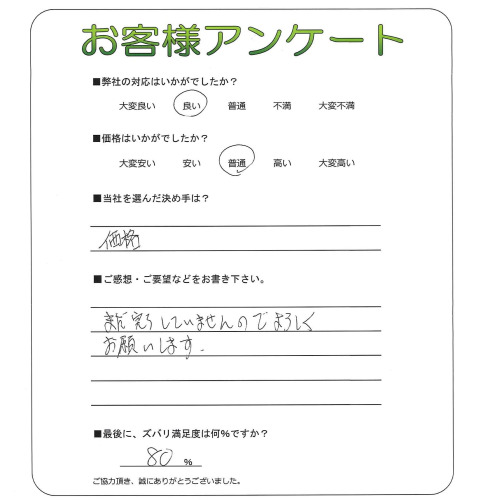 お客様アンケート
■弊社の対応はいかがでしたか？
大変良い 良い 普通 不満 大変不満
■価格はいかがでしたか？
大変安い 安い 普通 高い 大変高い
■当社を選んだ決め手は？
価格
■ご感想・ご要望などをお書き下さい。
まだ完了していませんのでよろしく
お願いします.
■最後に、ズバリ満足度は何％ですか？
80 %
ご協力頂き、誠にありがとうございました。